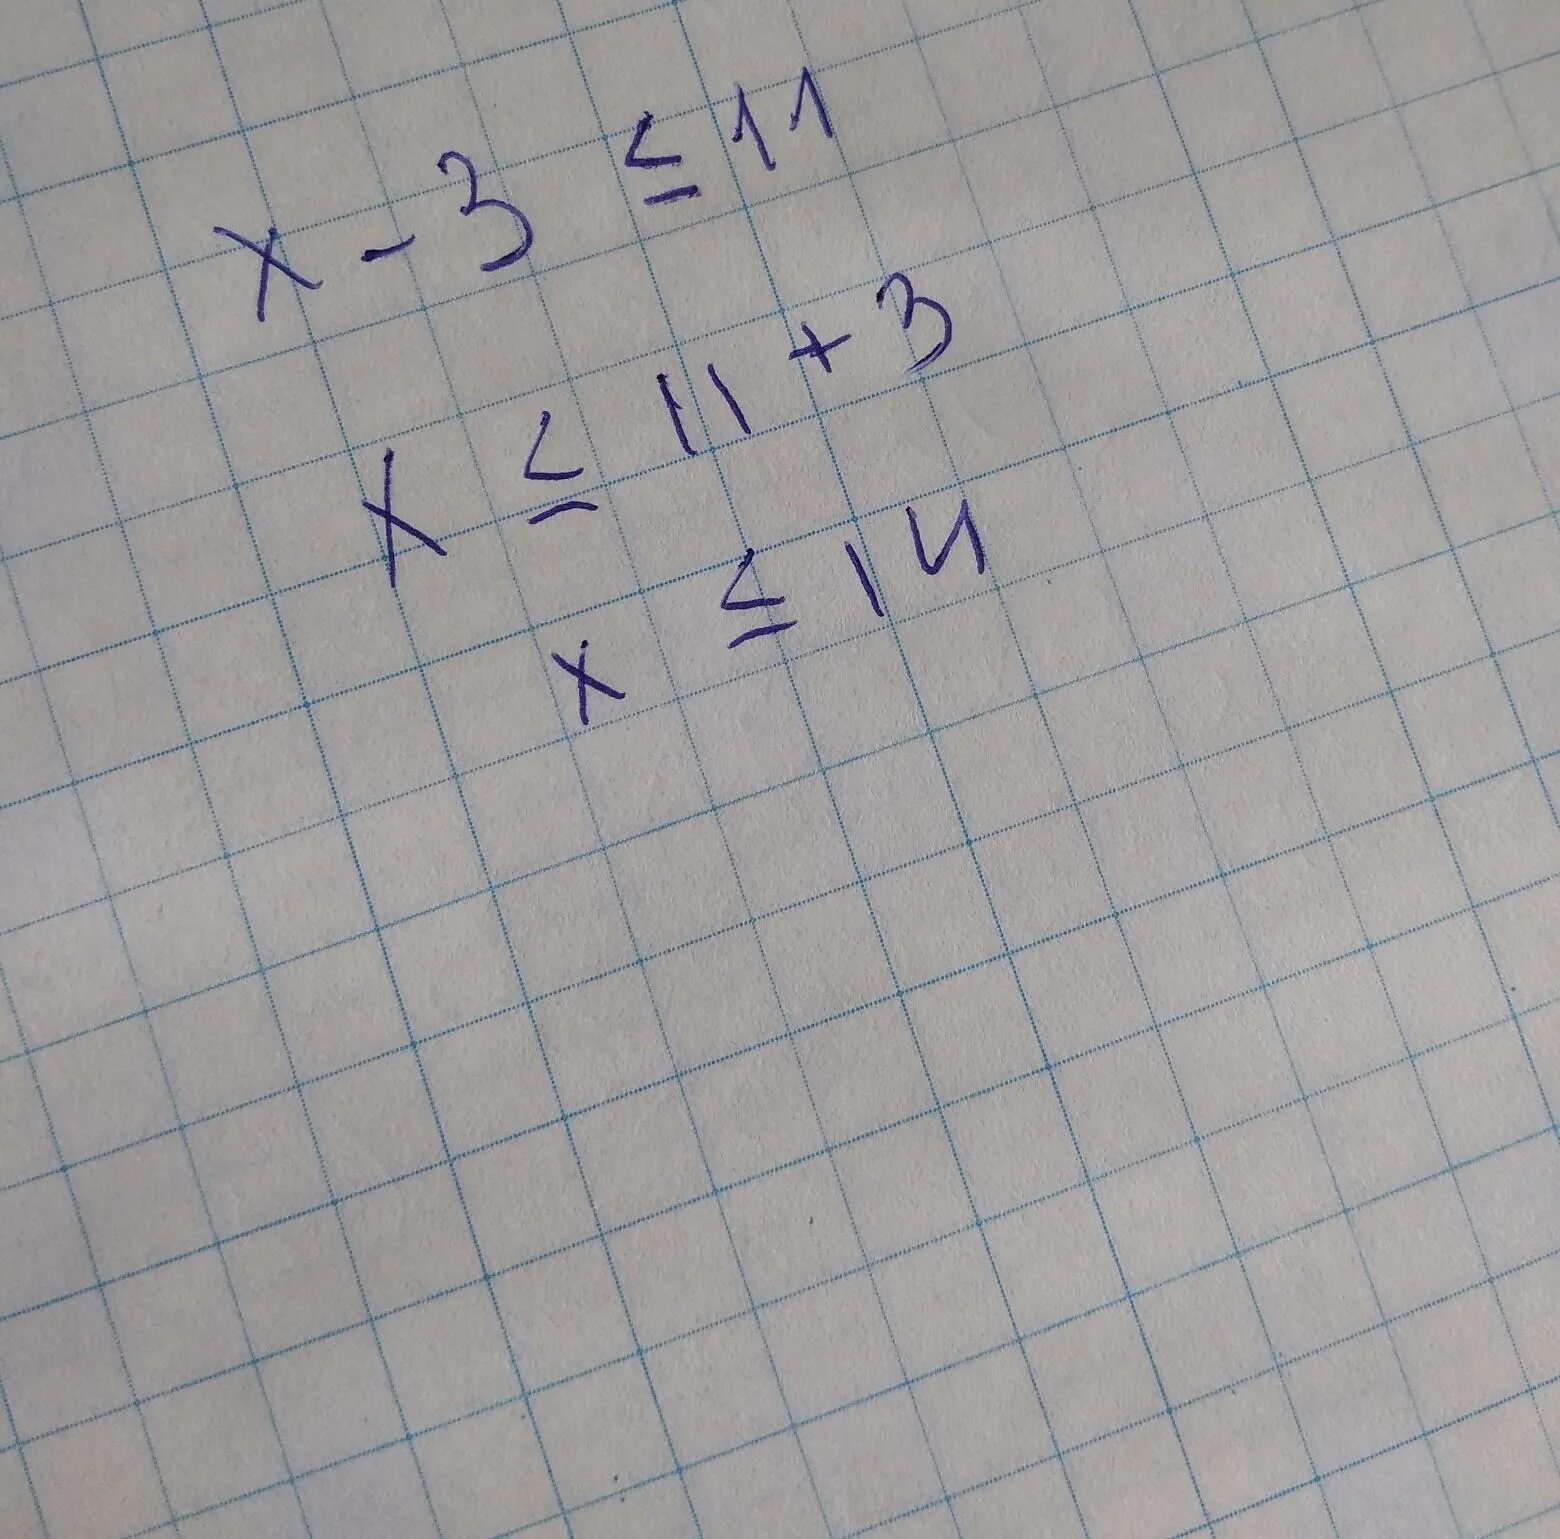 x - 3 ≤ 11
x ≤ 11 + 3
x ≤ 14